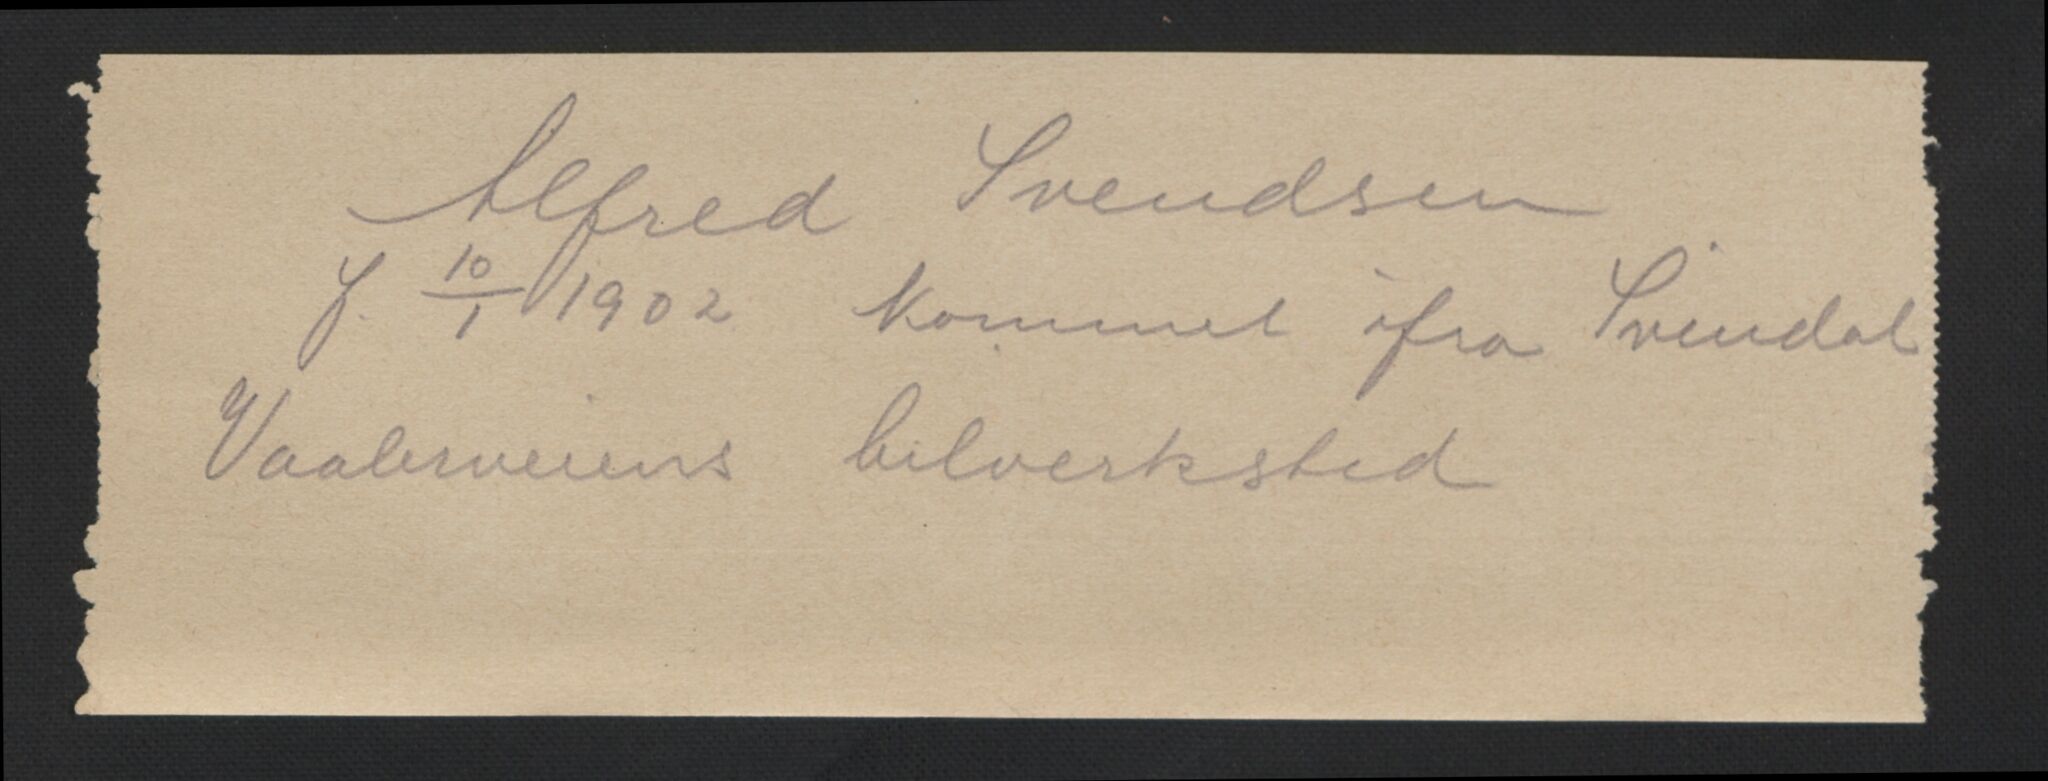 Alfred Svendsen
f. 10/1 1902 kommet ifra Svindal
Vaalerveiens bilverksted